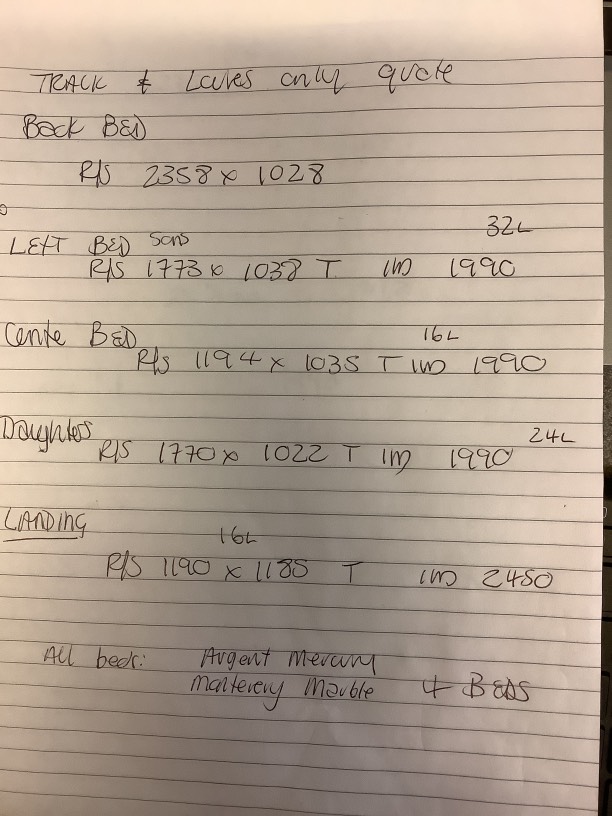 TRACK & Louves only quote
Back BED
R/S 2358 x 1028
32L
LEFT BED Sons
R/S 1773 x 1038 T 1990
16L
Centre BED
R/S 1194 x 1035 T 1990
24L
Daughters
R/S 1770 x 1022 T 1990
LANDING
16L
R/S 1190 x 1185 T 2450
All beds: Argent Mercury
Monterery Marble 4 BEDS